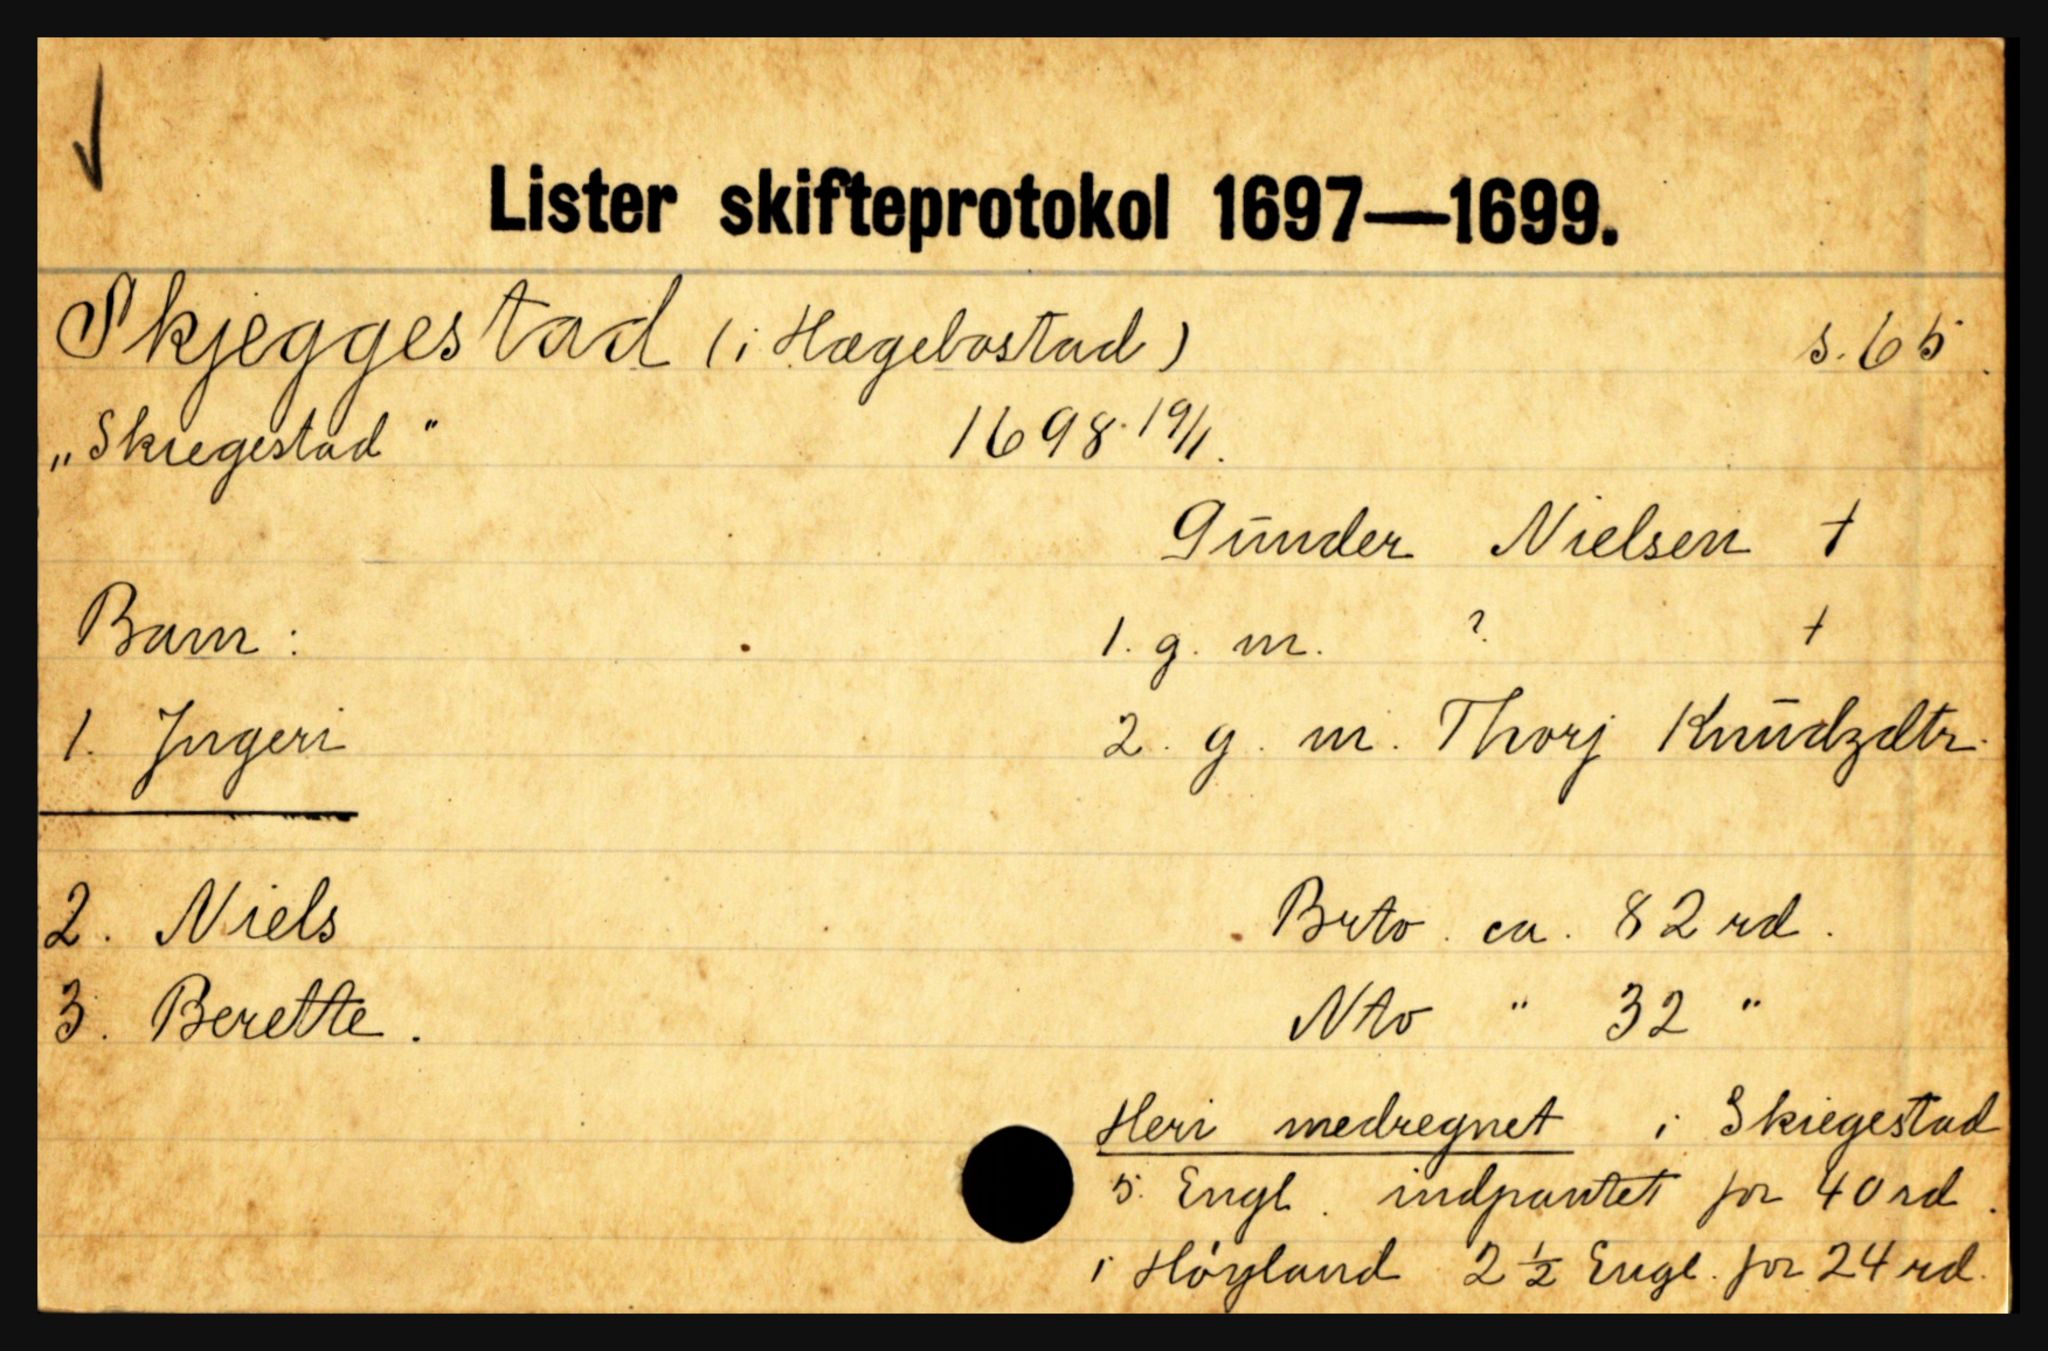 Lister skifteprotokol 1697—1699.
Skjeggestad (i Hægebostad) s. 65.
„Skiegestad" 1698 19/1.
Gūnder Nielsen †
Barn: 1. g. m. ? †
1. Jngeri 2. g. m. Thorj Knūdzdtr.
2. Niels Brto. ca. 82 rd.
3. Berette. Nto " 32 "
Heri medregnet i Skiegestad
5. Engl. indpantet for 40 rd.
i Høyland 2 ½ Engl. for 24 rd.